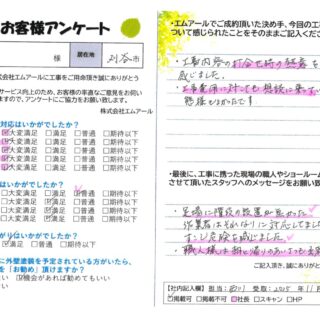 お客様アンケート
様 居住地 刈谷市
株式会社エムアールに工事をご用命頂き誠にありがとう
サービス向上のため、お客様の率直なご意見をお伺い
いますので、アンケートにご協力をお願い致します。
株式会社エムアール
対応はいかがでしたか？
大変満足 □満足 □普通 □期待以下
大変満足 □満足 □普通 □期待以下
大変満足 □満足 □普通 □期待以下
大変満足 □満足 □普通 □期待以下
はいかがでしたか？
□大変満足 □満足 □普通 □期待以下
いかがでしたか？
満足 □満足 □普通 □期待以下
満足 □満足 □普通 □期待以下
満足 □満足 □普通 □期待以下
に外壁塗装を予定されている方がいたら、
を「お勧め」頂けますか？
い □機会があれば勧めてもいい
・エムアールでご成約頂いた決め手、今回の工
ついて感じられたことをそのままご記入くださ
・工事内容の打合せ時の
感じました。
・工事費用に対しても相談に乗
・最後に、工事に携った現場の職人やショールーム
させて頂いたスタッフへのメッセージをお願い致
・足場に階段の設置が
作業者はそれなりに対応してま
すこし危険を感じました。
・職人様は
ご記入頂き、誠にありがと
【社内記入欄】担当： 受取：2025 年 11 月
掲載可 □掲載不可 □社長 □スキャン □HP